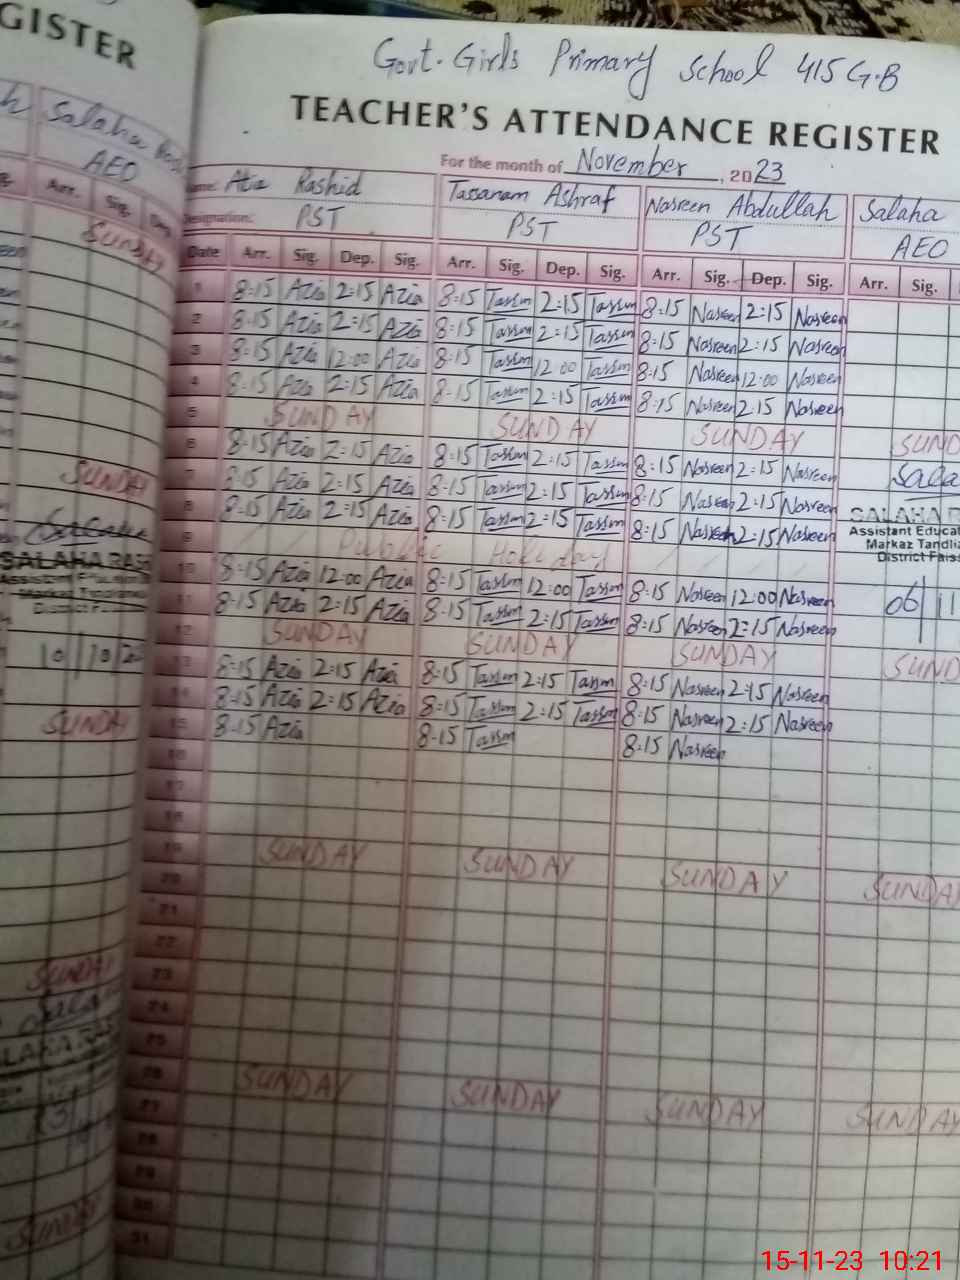 GISTER
Salaha
AEO
Arr. Sig.
SUNDAY
SUNDAY
10/10/
SUNDAY
SUNDAY
SUNDAY
Govt. Girls Primary School 415 G.B
TEACHER'S ATTENDANCE REGISTER
For the month of November, 2023
Name: Atia Rashid Tassanam Ashraf Nasreen Abdullah Salaha
Designation: PST PST PST AEO
Date Arr. Sig. Dep. Sig. Arr. Sig. Dep. Sig. Arr. Sig. Dep. Sig. Arr. Sig.
1 8:15 Azia 2:15 Azia 8:15 Tassm 2:15 Tassm 8:15 Nasreen 2:15 Nasreen
2 8:15 Azia 2:15 Azia 8:15 Tassm 2:15 Tassm 8:15 Nasreen 2:15 Nasreen
3 8:15 Azia 12:00 Azia 8:15 Tassm 12:00 Tassm 8:15 Nasreen 12:00 Nasreen
4 8:15 Azia 2:15 Azia 8:15 Tassm 2:15 Tassm 8:15 Nasreen 2:15 Nasreen
5 SUNDAY SUNDAY SUNDAY SUND
6 8:15 Azia 2:15 Azia 8:15 Tassm 2:15 Tassm 8:15 Nasreen 2:15 Nasreen Sala
7 8:15 Azia 2:15 Azia 8:15 Tassm 2:15 Tassm 8:15 Nasreen 2:15 Nasreen
8 8:15 Azia 2:15 Azia 8:15 Tassm 2:15 Tassm 8:15 Nasreen 2:15 Nasreen
SALAHA R
Assistant Educa
Markaz Tandlia
District Fais
9 Public Holiday
10 8:15 Azia 12:00 Azia 8:15 Tassm 12:00 Tassm 8:15 Nasreen 12:00 Nasreen 06/11
11 8:15 Azia 2:15 Azia 8:15 Tassm 2:15 Tassm 8:15 Nasreen 2:15 Nasreen
12 SUNDAY SUNDAY SUNDAY SUND
13 8:15 Azia 2:15 Azia 8:15 Tassm 2:15 Tassm 8:15 Nasreen 2:15 Nasreen
14 8:15 Azia 2:15 Azia 8:15 Tassm 2:15 Tassm 8:15 Nasreen 2:15 Nasreen
15 8:15 Azia 8:15 Tassm 8:15 Nasreen
16
17
18
19 SUNDAY SUNDAY SUNDAY SUNDAY
20
21
22
23
24
25
26 SUNDAY SUNDAY SUNDAY SUNDAY
27
28
29
30
31
15-11-23 10:21